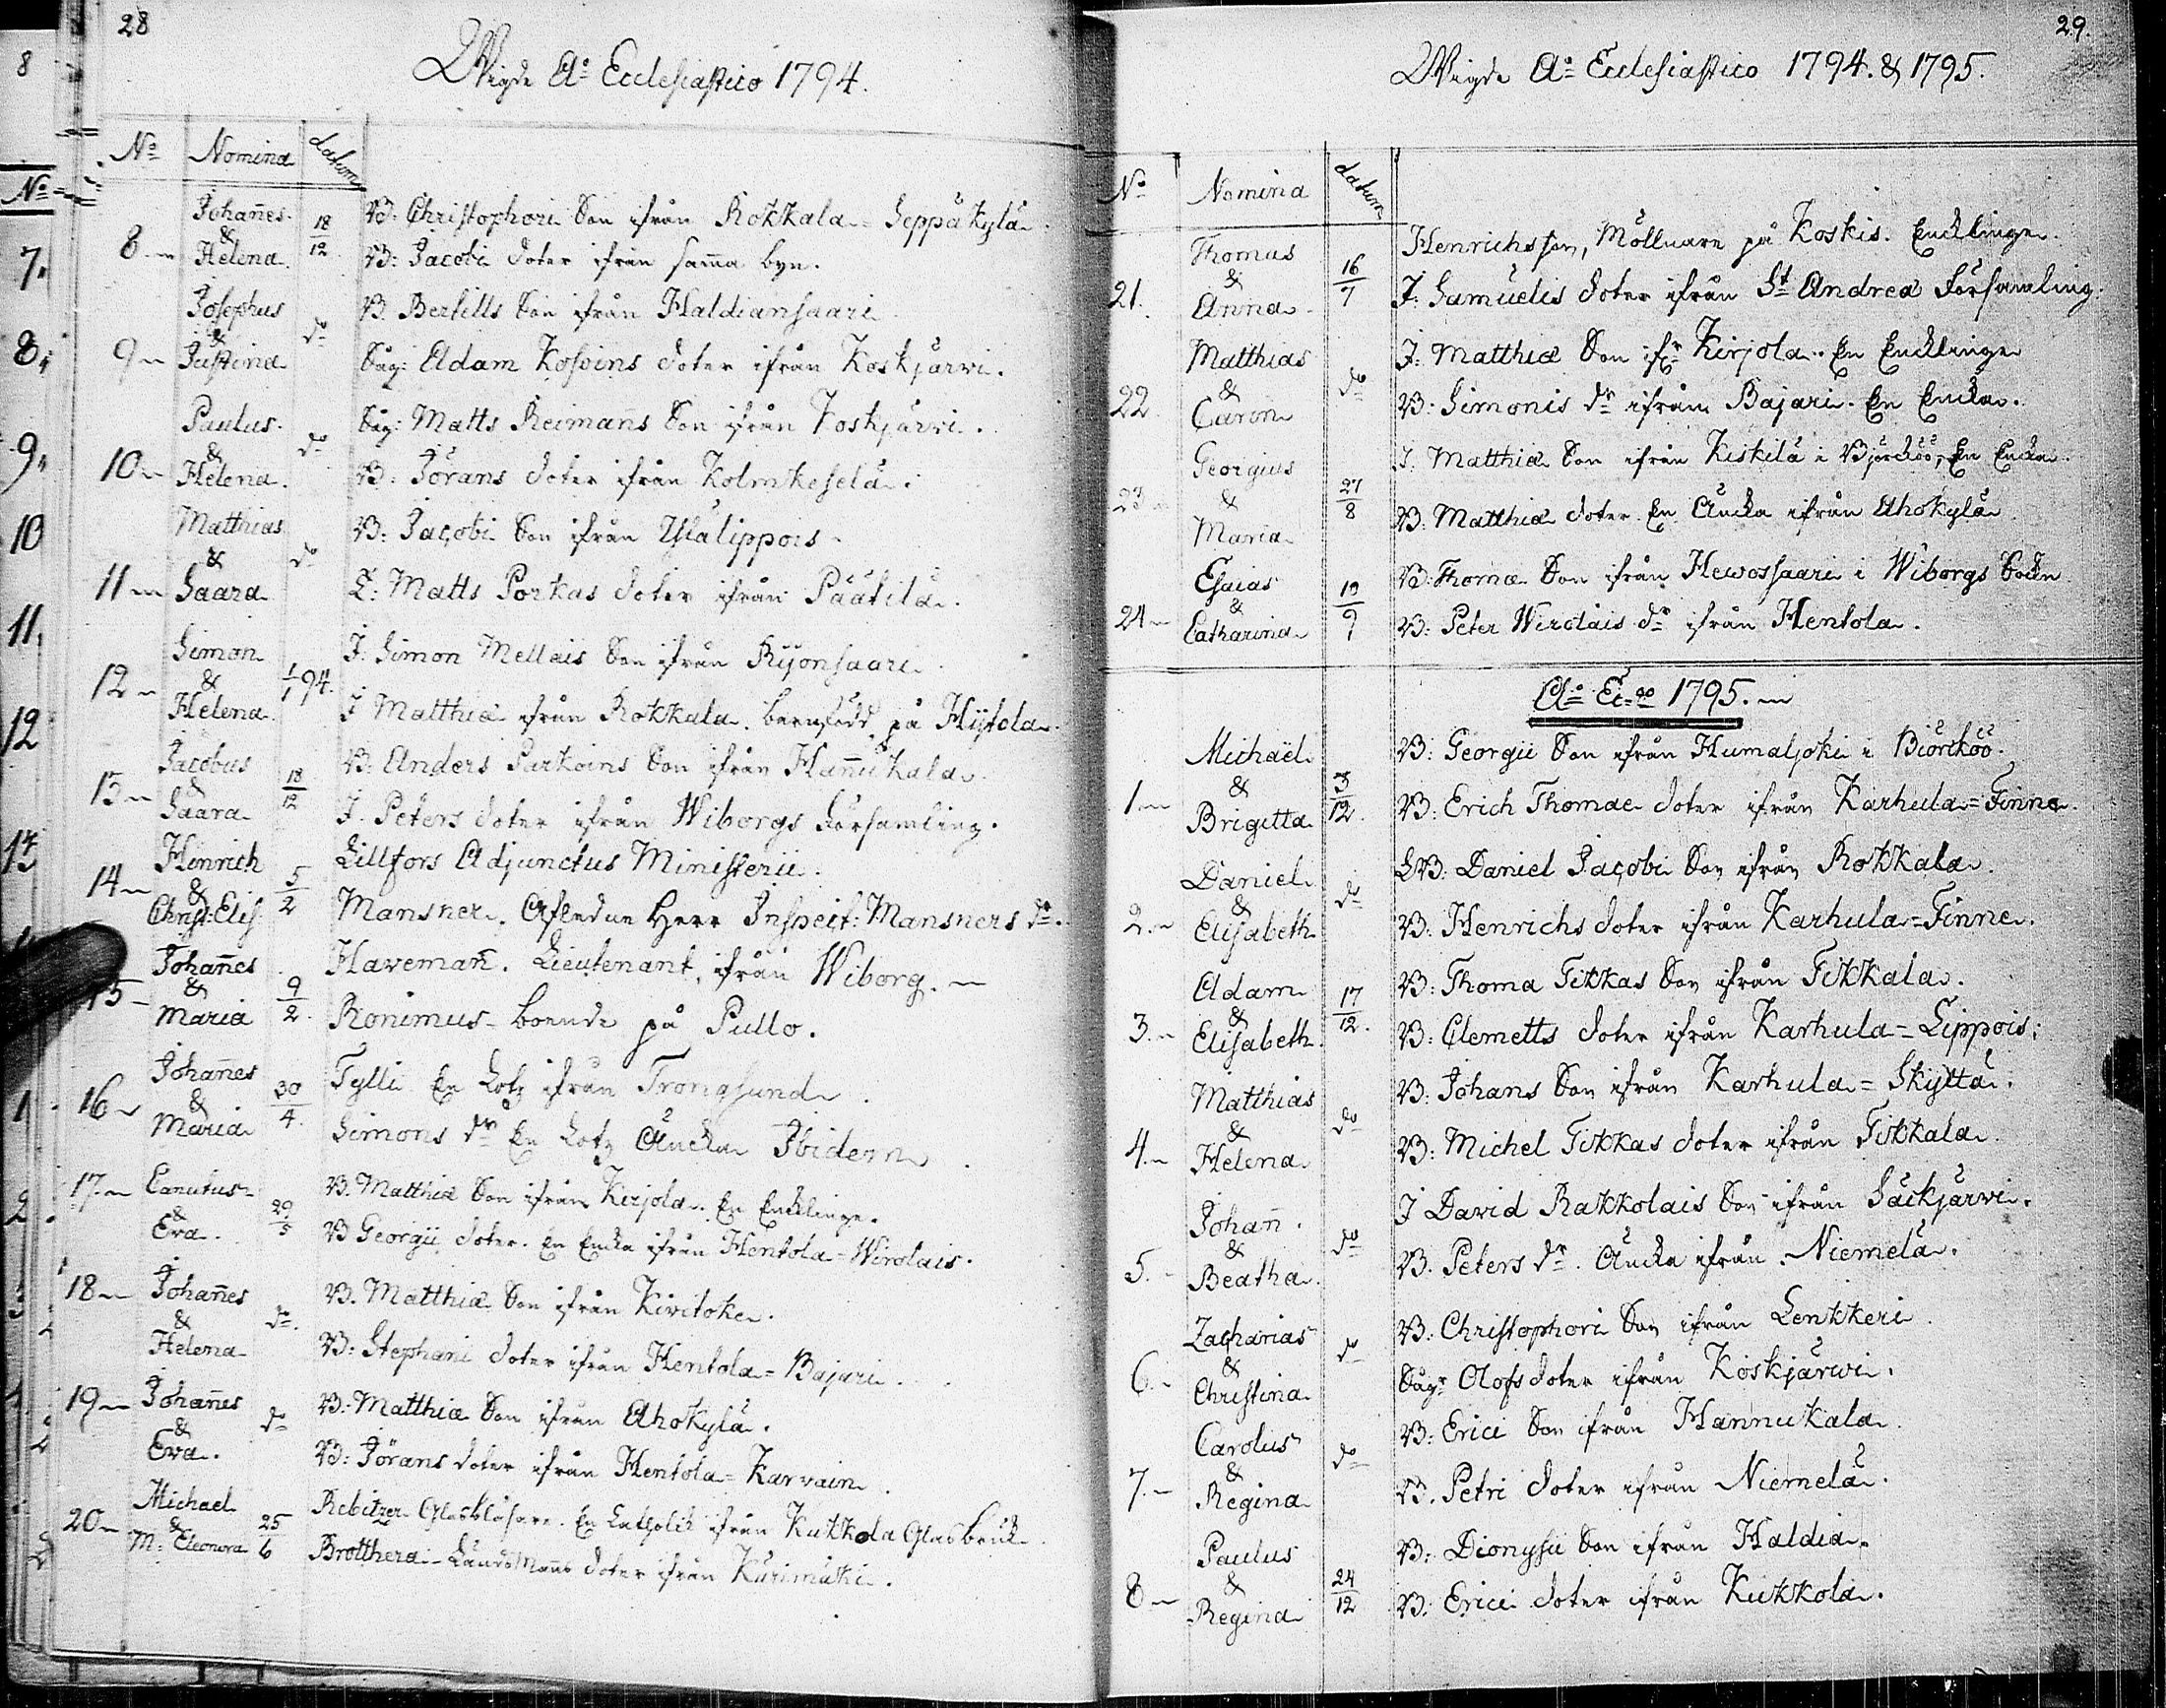 28
Wigde Ao Ecclesiastico 1794.
No Nomina datum
8 Johan̄es & Helena 18/12
B: Christophori Son ifrån Rokkala-Seppäkylä.
B: Jacobi doter ifrån sam̄a byn.
9 Josephus & Justina do
B. Bertills Son ifrån Haldiansaari
Säg: Adam Kossins doter ifrån Koskjärwi.
10 Paulus & Helena do
Säg: Matts Reiman̄s Son ifrån Koskjärwi.
B: Jörans doter ifrån Kolmikeselä.
11 Matthias & Saara do
B: Jacobi Son ifrån Ylälippois
T: Matts Porkas doter ifrån Päätilä.
12 Simon & Helena 1/1 94.
J. Simon Mellais Son ifrån Rijonsaari
J Matthiæ ifrån Rokkala. barnfödd på Hÿtola
13 Jacobus & Saara 18/12
B: Anders Parkoins Son ifrån Han̄ukala.
J. Peters doter ifrån Wiborgs Församling.
14 Hinrich & Christ: Elis: 5/2
Lillfors Adjunctus Ministerii.
Mansner. Afledne Herr Inspect: Mansners dr.
15 Johan̄es & Maria 9/2.
Haveman̄. Lieutenant, ifrån Wiborg.
Ronimus boende på Pullo.
16 Johan̄es & Maria 30/4.
Tylli En Lotz ifrån Trongsund
Simons dr En Lotz Äncka Ibidem
17. Canutus & Eva. 29/5
B. Matthiæ Son ifrån Kirjola. En Encklinge.
B Georgii doter. En Encka ifrån Hentola-Wirolais.
18 Johan̄es & Helena do.
B. Matthiæ Son ifrån Kivitoke.
B: Stephani doter ifrån Hentola-Bajari.
19 Johan̄es & Eva. do
B: Matthiæ Son ifrån Ahokylä.
B: Jörans doter ifrån Hentola-Karvain.
20 Michael & M: Eleonora 25/6
Rebitzer Glasblåsare. En Catholik ifrån Kukkola Glasbruk
Brotthera Landsmans doter ifrån Kurimäki.
29.
Wigde Ao Ecclesiastico 1794. & 1795.
No Nomina datum
21. Thomas & Anna 16/7
Henrichsson, Möllnare på Koskis. Encklinge.
J. Samuelis doter ifrån St Andreæ Församling.
22. Matthias & Carin do
J: Matthiæ Son ifr Kirjola. En Encklinge
B: Simonis dr ifrån Bajari. En Encka.
23 Georgius & Maria 27/8
J. Matthiæ Son ifrån Kiskilä i Björcköö, En Encka.
B: Matthiæ doter En Äncka ifrån Ahokylä
24 Esaias & Catharina 19/9
B: Thomæ Son ifrån Hewossaari i Wiborgs Sockn
B: Peter Wirolais dr ifrån Hentola.
Ao Ec-co 1795.
1 Michaël & Brigitta 3/12.
B: Georgii Son ifrån Humaljoki i Biörcköö.
B: Erich Thomae doter ifrån Karhula-Finne.
2. Daniel & Elisabeth do
LB: Daniel Jacobi Son ifrån Rokkala.
B: Henrichs doter ifrån Karhula-Finne.
3. Adam & Elisabeth 17/12.
B: Thoma Tikkas Son ifrån Tikkala.
B: Clemetts doter ifrån Karhula-Lippois:
4. Matthias & Helena do
B: Johans Son ifrån Karhula-Skyttä.
B: Michel Tikkas doter ifrån Tikkala.
5. Johan̄. & Beatha. do
J David Rakkolais Son ifrån Säckjärwi.
B. Peters dr. Äncka ifrån Niemelä.
6. Zacharias & Christina do
B: Christophori Son ifrån Lenkkeri.
Sägr Olofs doter ifrån Koskjärwi.
7. Carolus & Regina do
B: Erici Son ifrån Hannukala.
B. Petri doter ifrån Niemelä.
8 Paulus & Regina 24/12
B: Dionysii Son ifrån Haldia.
B: Erici doter ifrån Kukkola.
8
No
7.
8.
9.
10
11.
12
1
2
3
4